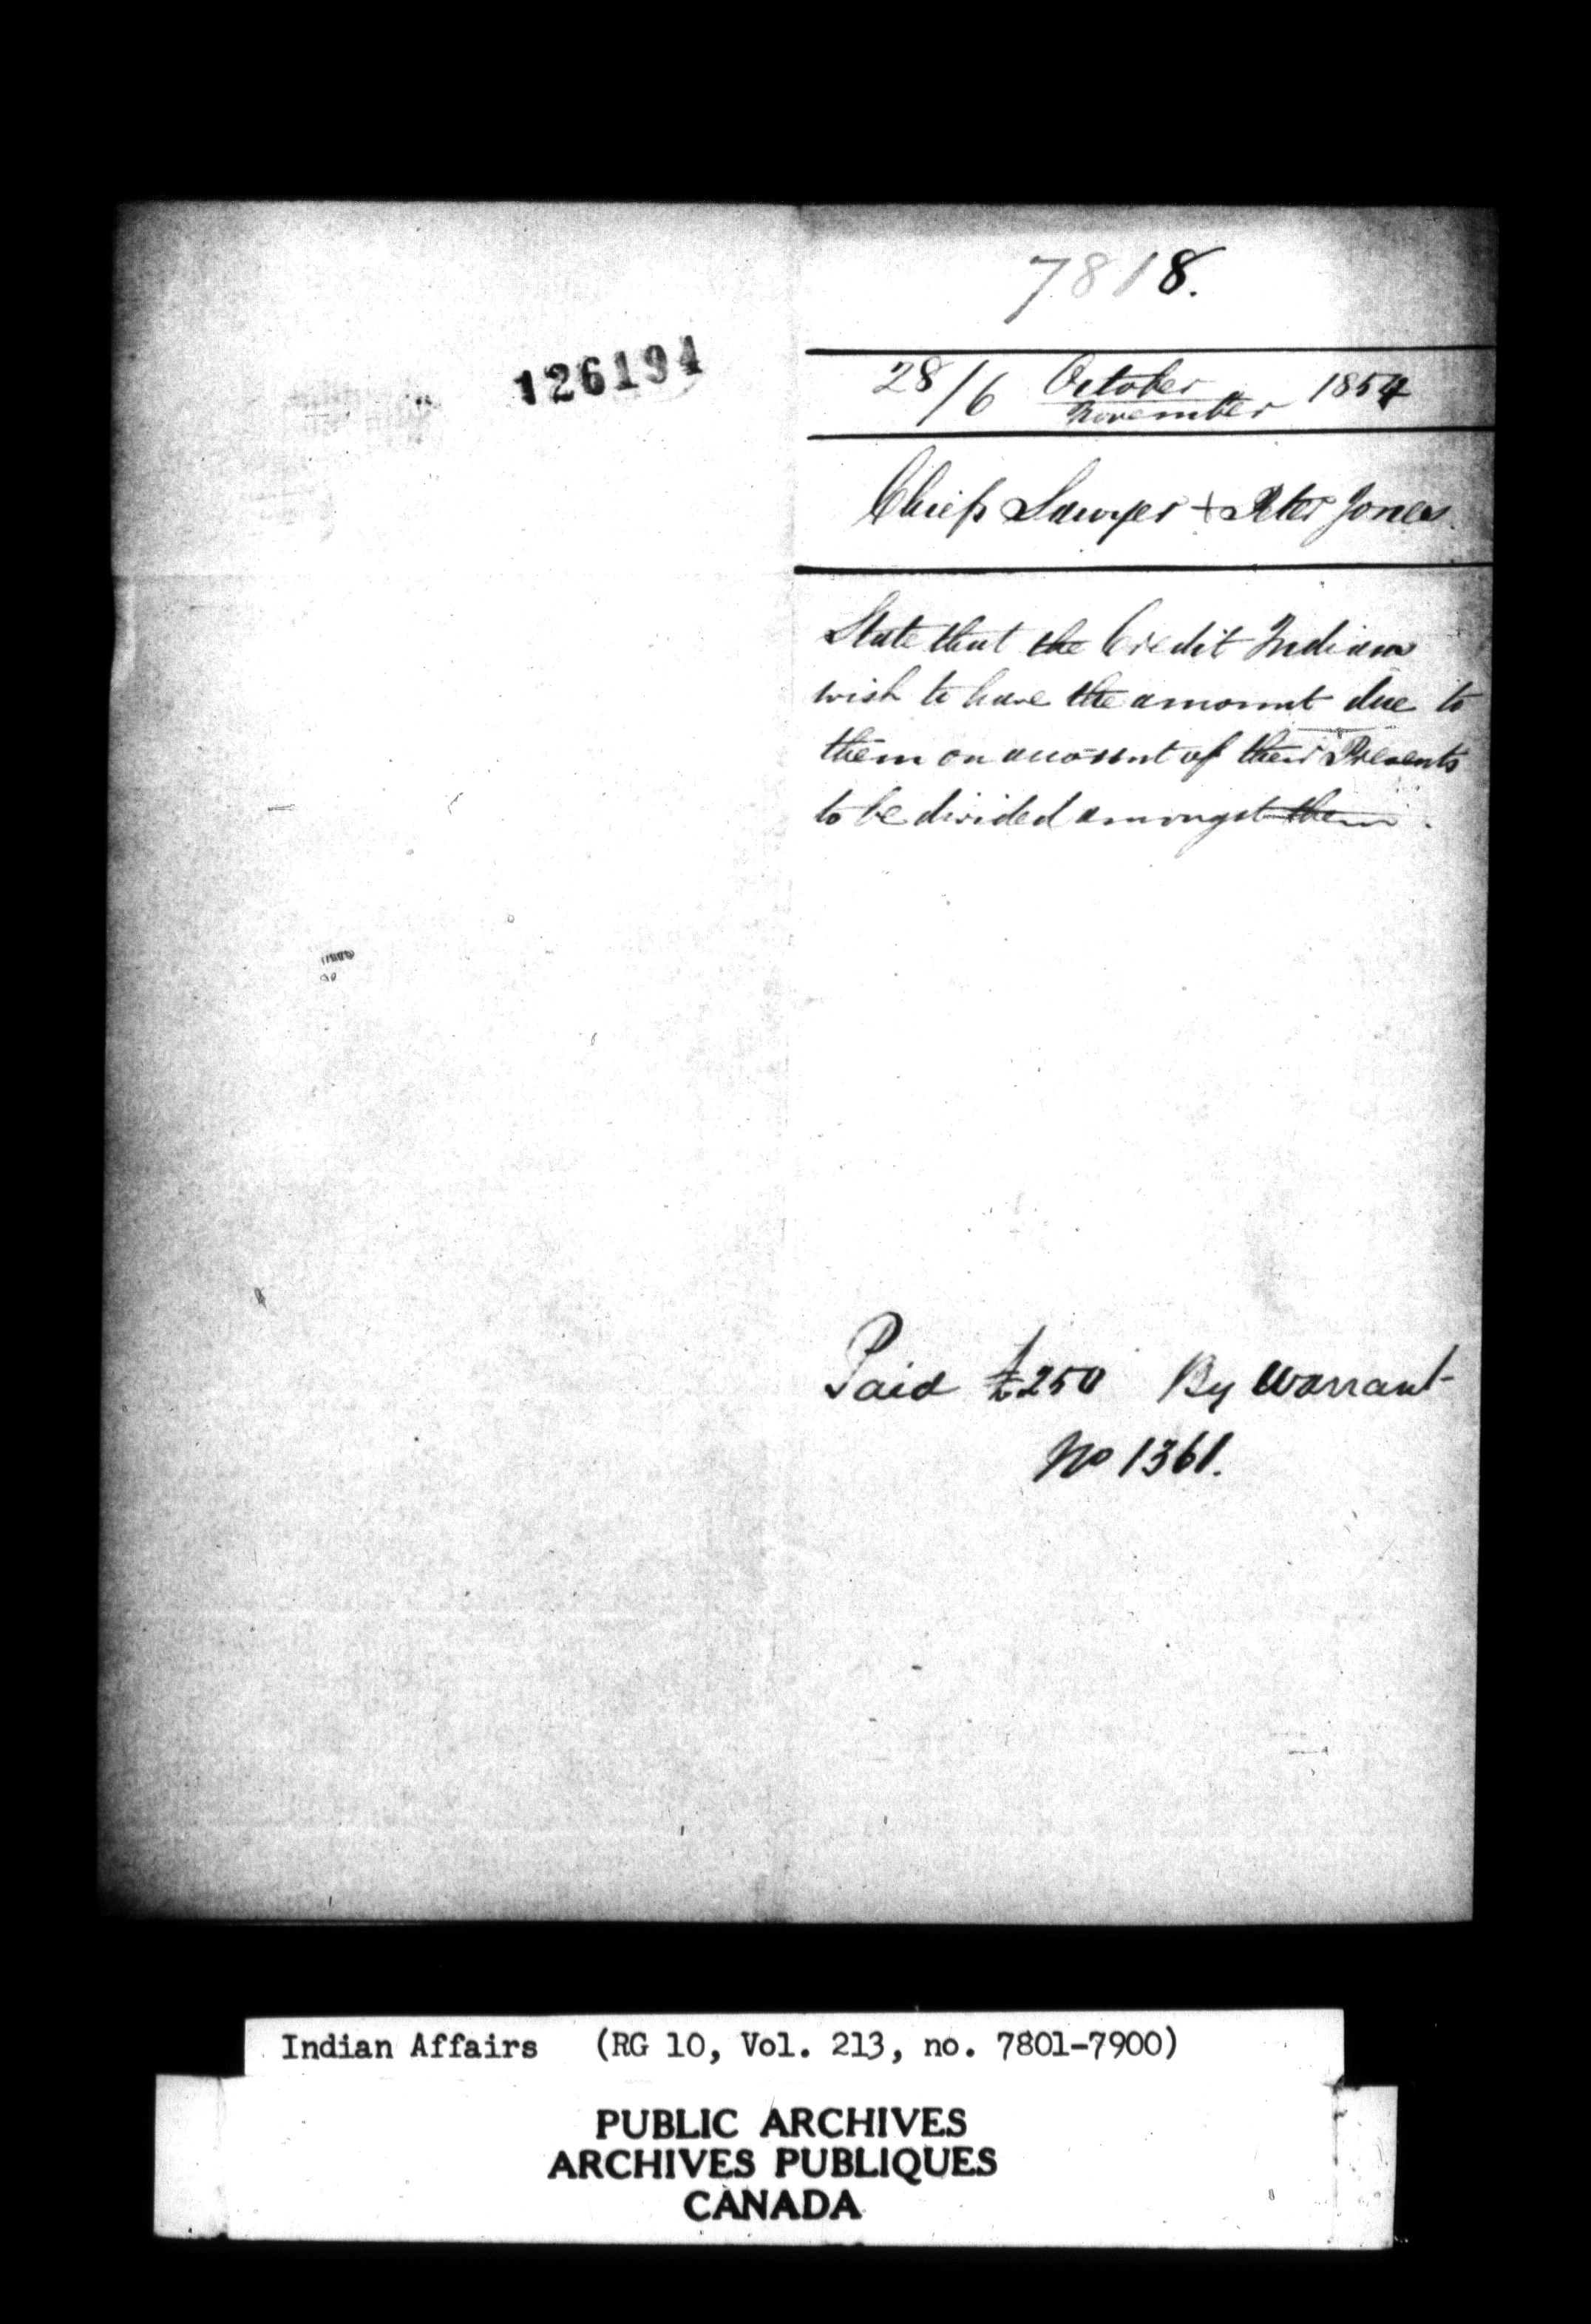 7818.
126194
28/6 October
November 1854
Chiefs Sawyer + Peter Jones
State that the Credit Indians
wish to have the amount due to
them on account of their Presents
to be divided amongst them.
Paid £250 By Warrant
No 1361.
Indian Affairs (RG 10, Vol. 213, no. 7801-7900)
PUBLIC ARCHIVES
ARCHIVES PUBLIQUES
CANADA